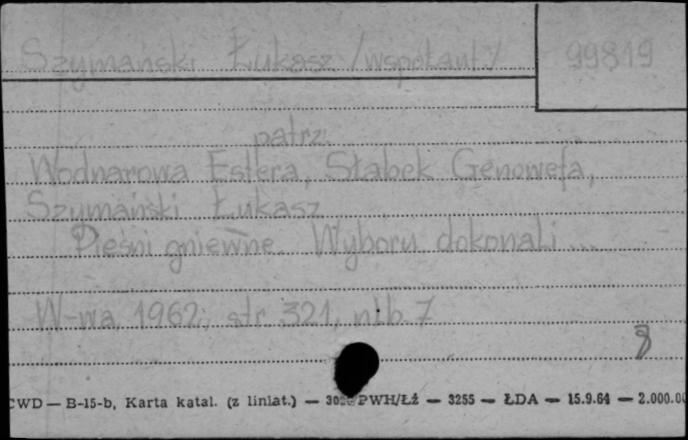 Szymański Łukasz /współaut./ 99819
patrz:
Wodnarowa Estera, Słabek Genowefa,
Szymański Łukasz
Pieśni gniewne. Wyboru dokonali ...
W-wa 1962, str. 321, nlb. 7
8
CWD — B-15-b, Karta katal. (z liniat.) — PWH/Łź — 3255 — ŁDA — 15.9.64 — 2.000.00